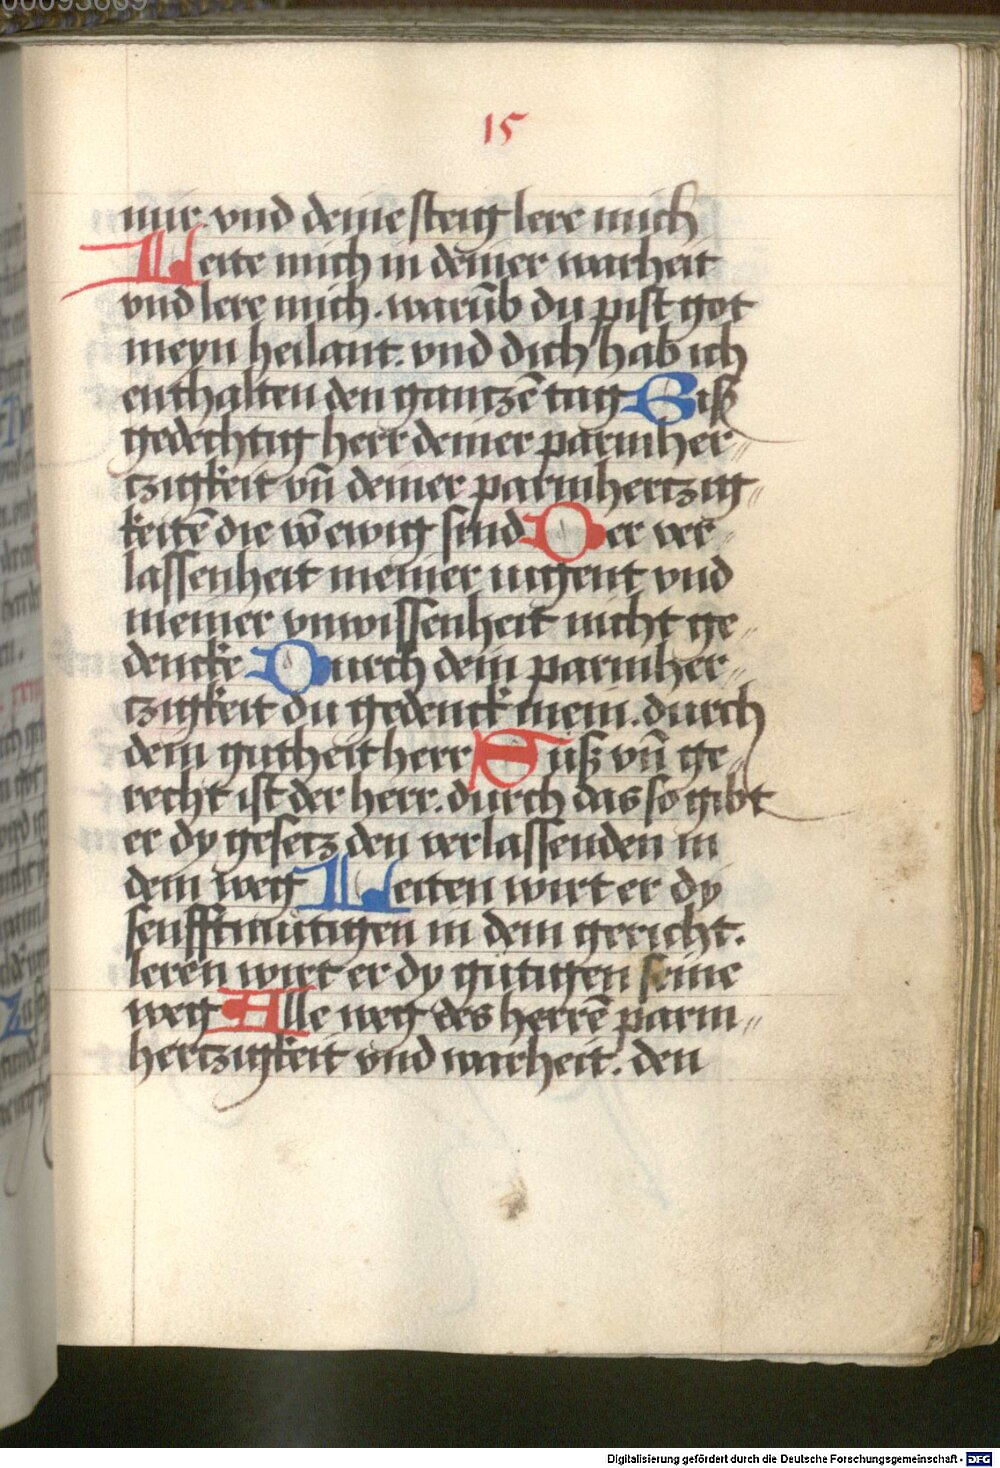 15
mir. vnd deine steig lere mich
Leite mich in deiner warheit
vnd lere mich. warūb du pist got
meyn heilant. vnd dich hab ich
enthalten den gantzē tag Biß
gedechtig herr deiner parmher„
tzigkeit vn̄ deiner parmhertzig„
keitē die vō ewig sind Der ver„
lassenheit meiner iugent vnd
meiner vnwissenheit nicht ge„
dencke Durch dein parmher„
tzigkeit du gedenck mein. durch
dein gutheit herr Suß vn̄ ge„
recht ist der herr. durch das so gibt
er dy gesetz den verlassenden in
dem weg Leiten wirt er dy
senfftmutigen in dem gericht.
leren wirt er dy gutigen seine
weg Alle weg des herrē parm„
hertzigkeit vnd warheit. den
Digitalisierung gefördert durch die Deutsche Forschungsgemeinschaft - DFG